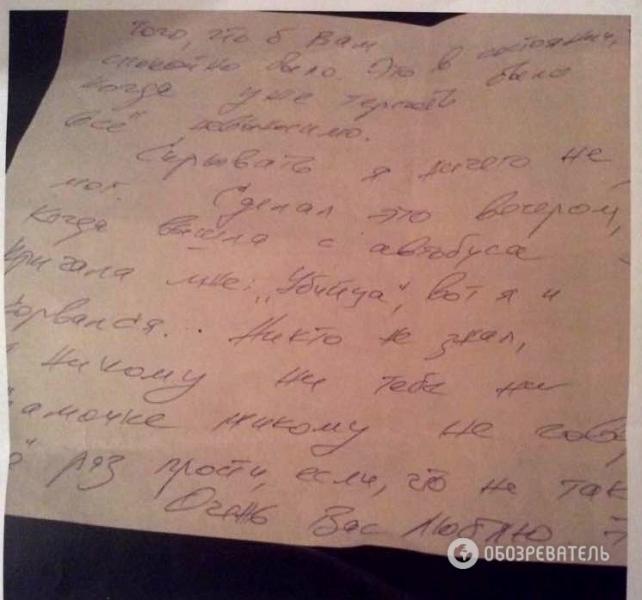 того, что б Вам
спокойно было. Это в состоянии,
когда уже терпеть было
всё невыносимо.
Скрывать я ничего не
мог. Сделал это вечером,
когда вышла с автобуса
кричала мне: „Убийца", вот я и
сорвался... Никто не знал,
никому ни тебе ни
амочке никому не гов
раз прости, если, что не так
Очень Вас люблю
ОБОЗРЕВАТЕЛЬ